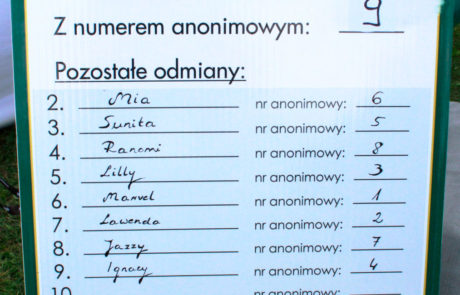 Z numerem anonimowym: 9
Pozostałe odmiany:
2. Mia nr anonimowy: 6
3. Sunita nr anonimowy: 5
4. Ranomi nr anonimowy: 8
5. Lilly nr anonimowy: 3
6. Manuel nr anonimowy: 1
7. Lawenda nr anonimowy: 2
8. Jazzy nr anonimowy: 7
9. Ignacy nr anonimowy: 4
10. nr anonimowy: